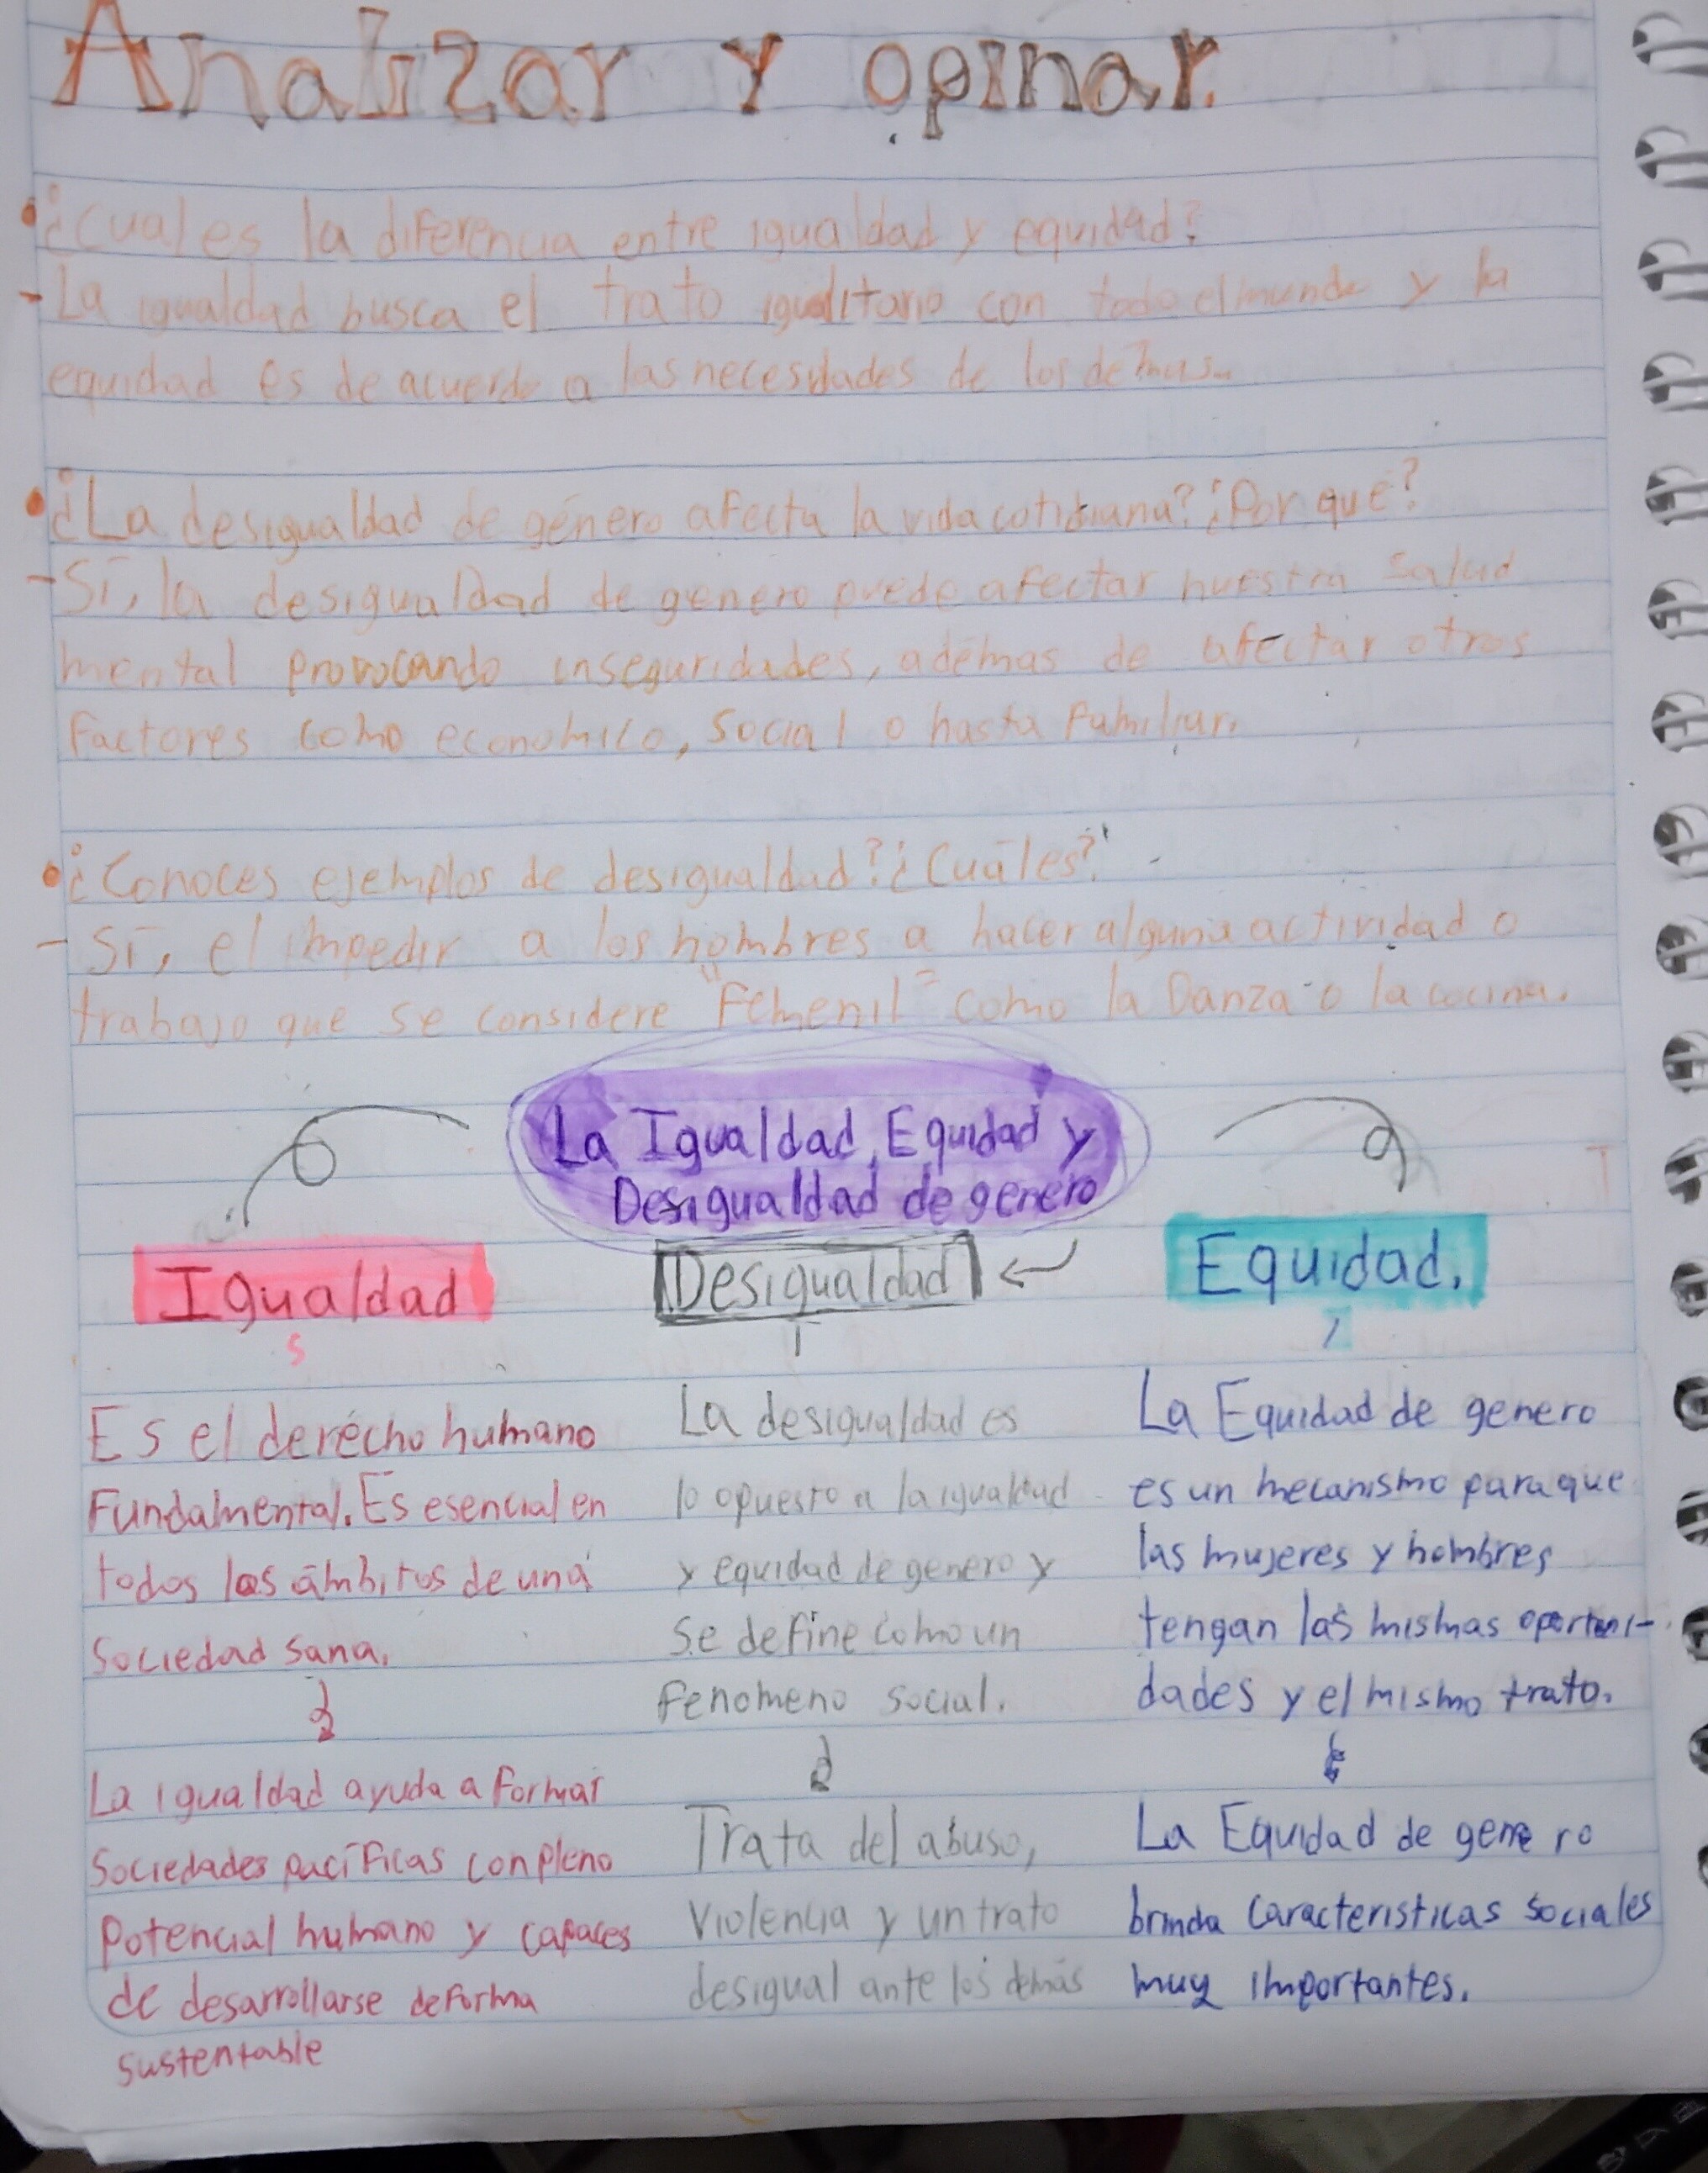 Analizar y opinar.
¿Cual es la diferencia entre igualdad y equidad?
- La igualdad busca el trato igualitario con todo el mundo y la
equidad es de acuerdo a las necesidades de los demas.
¿La desigualdad de género afecta la vida cotidiana? ¿Por qué?
- Sí, la desigualdad de genero puede afectar nuestra salud
mental provocando inseguridades, ademas de afectar otros
factores como economico, social o hasta familiar.
¿Conoces ejemplos de desigualdad? ¿Cuáles?
- Sí, el impedir a los hombres a hacer alguna actividad o
trabajo que se considere "Femenil" como la Danza o la cocina.
La Igualdad, Equidad y
Desigualdad de genero
Igualdad
Es el derécho humano
Fundamental. Es esencial en
todos los ámbitos de una
Sociedad sana.
La igualdad ayuda a formar
Sociedades pacíficas con pleno
Potencial humano y capaces
de desarrollarse de forma
sustentable
Desigualdad
La desigualdad es
lo opuesto a la igualdad
y equidad de genero y
Se define como un
fenomeno social.
Trata del abuso,
Violencia y un trato
desigual ante los demás
Equidad.
La Equidad de genero
es un mecanismo para que
las mujeres y hombres
tengan las mismas oportuni-
dades y el mismo trato.
La Equidad de genero
brinda caracteristicas sociales
muy importantes.